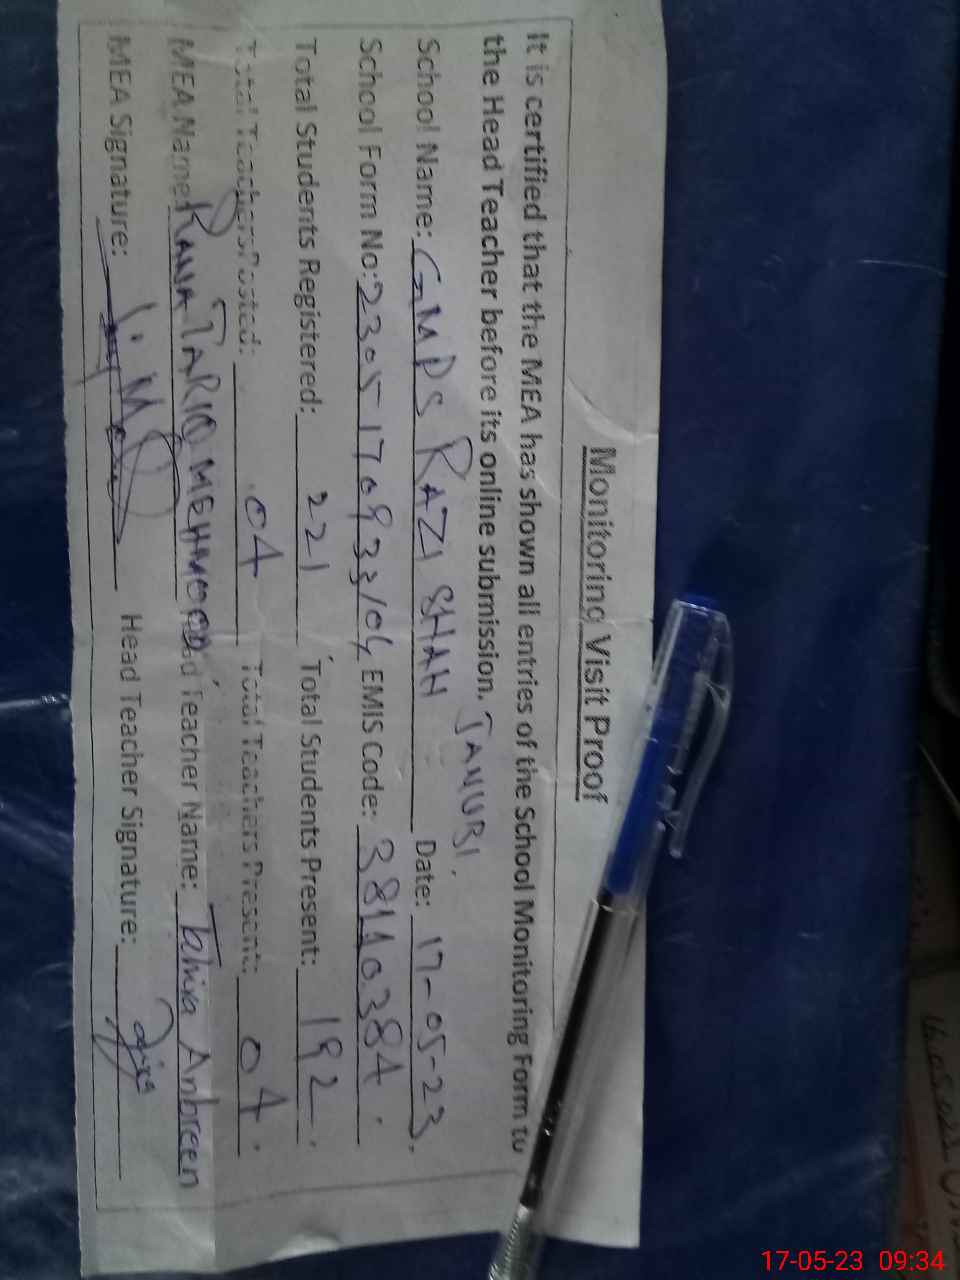 Monitoring Visit Proof
It is certified that the MEA has shown all entries of the School Monitoring Form to
the Head Teacher before its online submission. JANUBI.
School Name: GMPS RAZI SHAH Date: 17-05-23.
School Form No: EMIS Code: 38110384.
Total Students Registered: 221 Total Students Present: 192.
Total Teachers Posted: 04 Total Teachers Present: 04.
MEA Name: RANA TARIQ MEHMOOD Head Teacher Name: Tahira Anbreen
MEA Signature: Head Teacher Signature:
17-05-23 09:34